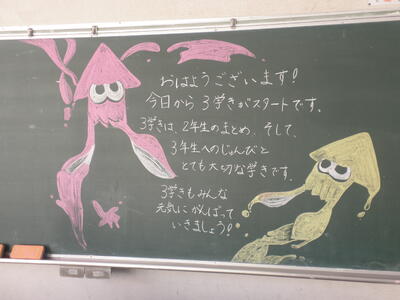 おはようございます!
今日から3学きがスタートです。
3学きは、2年生のまとめ、そして、
3年生へのじゅんびと
とても大切な学きです。
3学きもみんな
元気にがんばって
いきましょう!